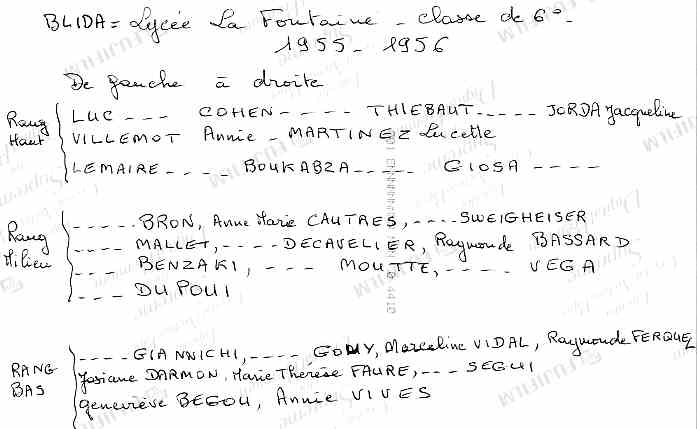 BLIDA = Lycée La Fontaine - classe de 6°-
1955 - 1956
De gauche à droite
Rang Haut
LUC --- COHEN ----- THIEBAUT ----- JORDA Jacqueline
VILLEMOT Annie - MARTINEZ Lucette
LEMAIRE ---- BOUKABZA ----- GIOSA ----
Rang Milieu
----- BRON, Anne Marie CAUTRES, ---- SWEIGHEISER
---- MALLET, ---- DECAVELIER, Raymonde BASSARD
--- BENZAKI, --- MOUTTE, ---- VEGA
---- DUPOUI
RANG BAS
---- GIANNICHI, ---- GOMY, Marceline VIDAL, Raymonde FERQUEZ
Josiane DARMON, Marie Thérèse FAURE, --- SEGUI
Geneviève BEGOU, Annie VIVES